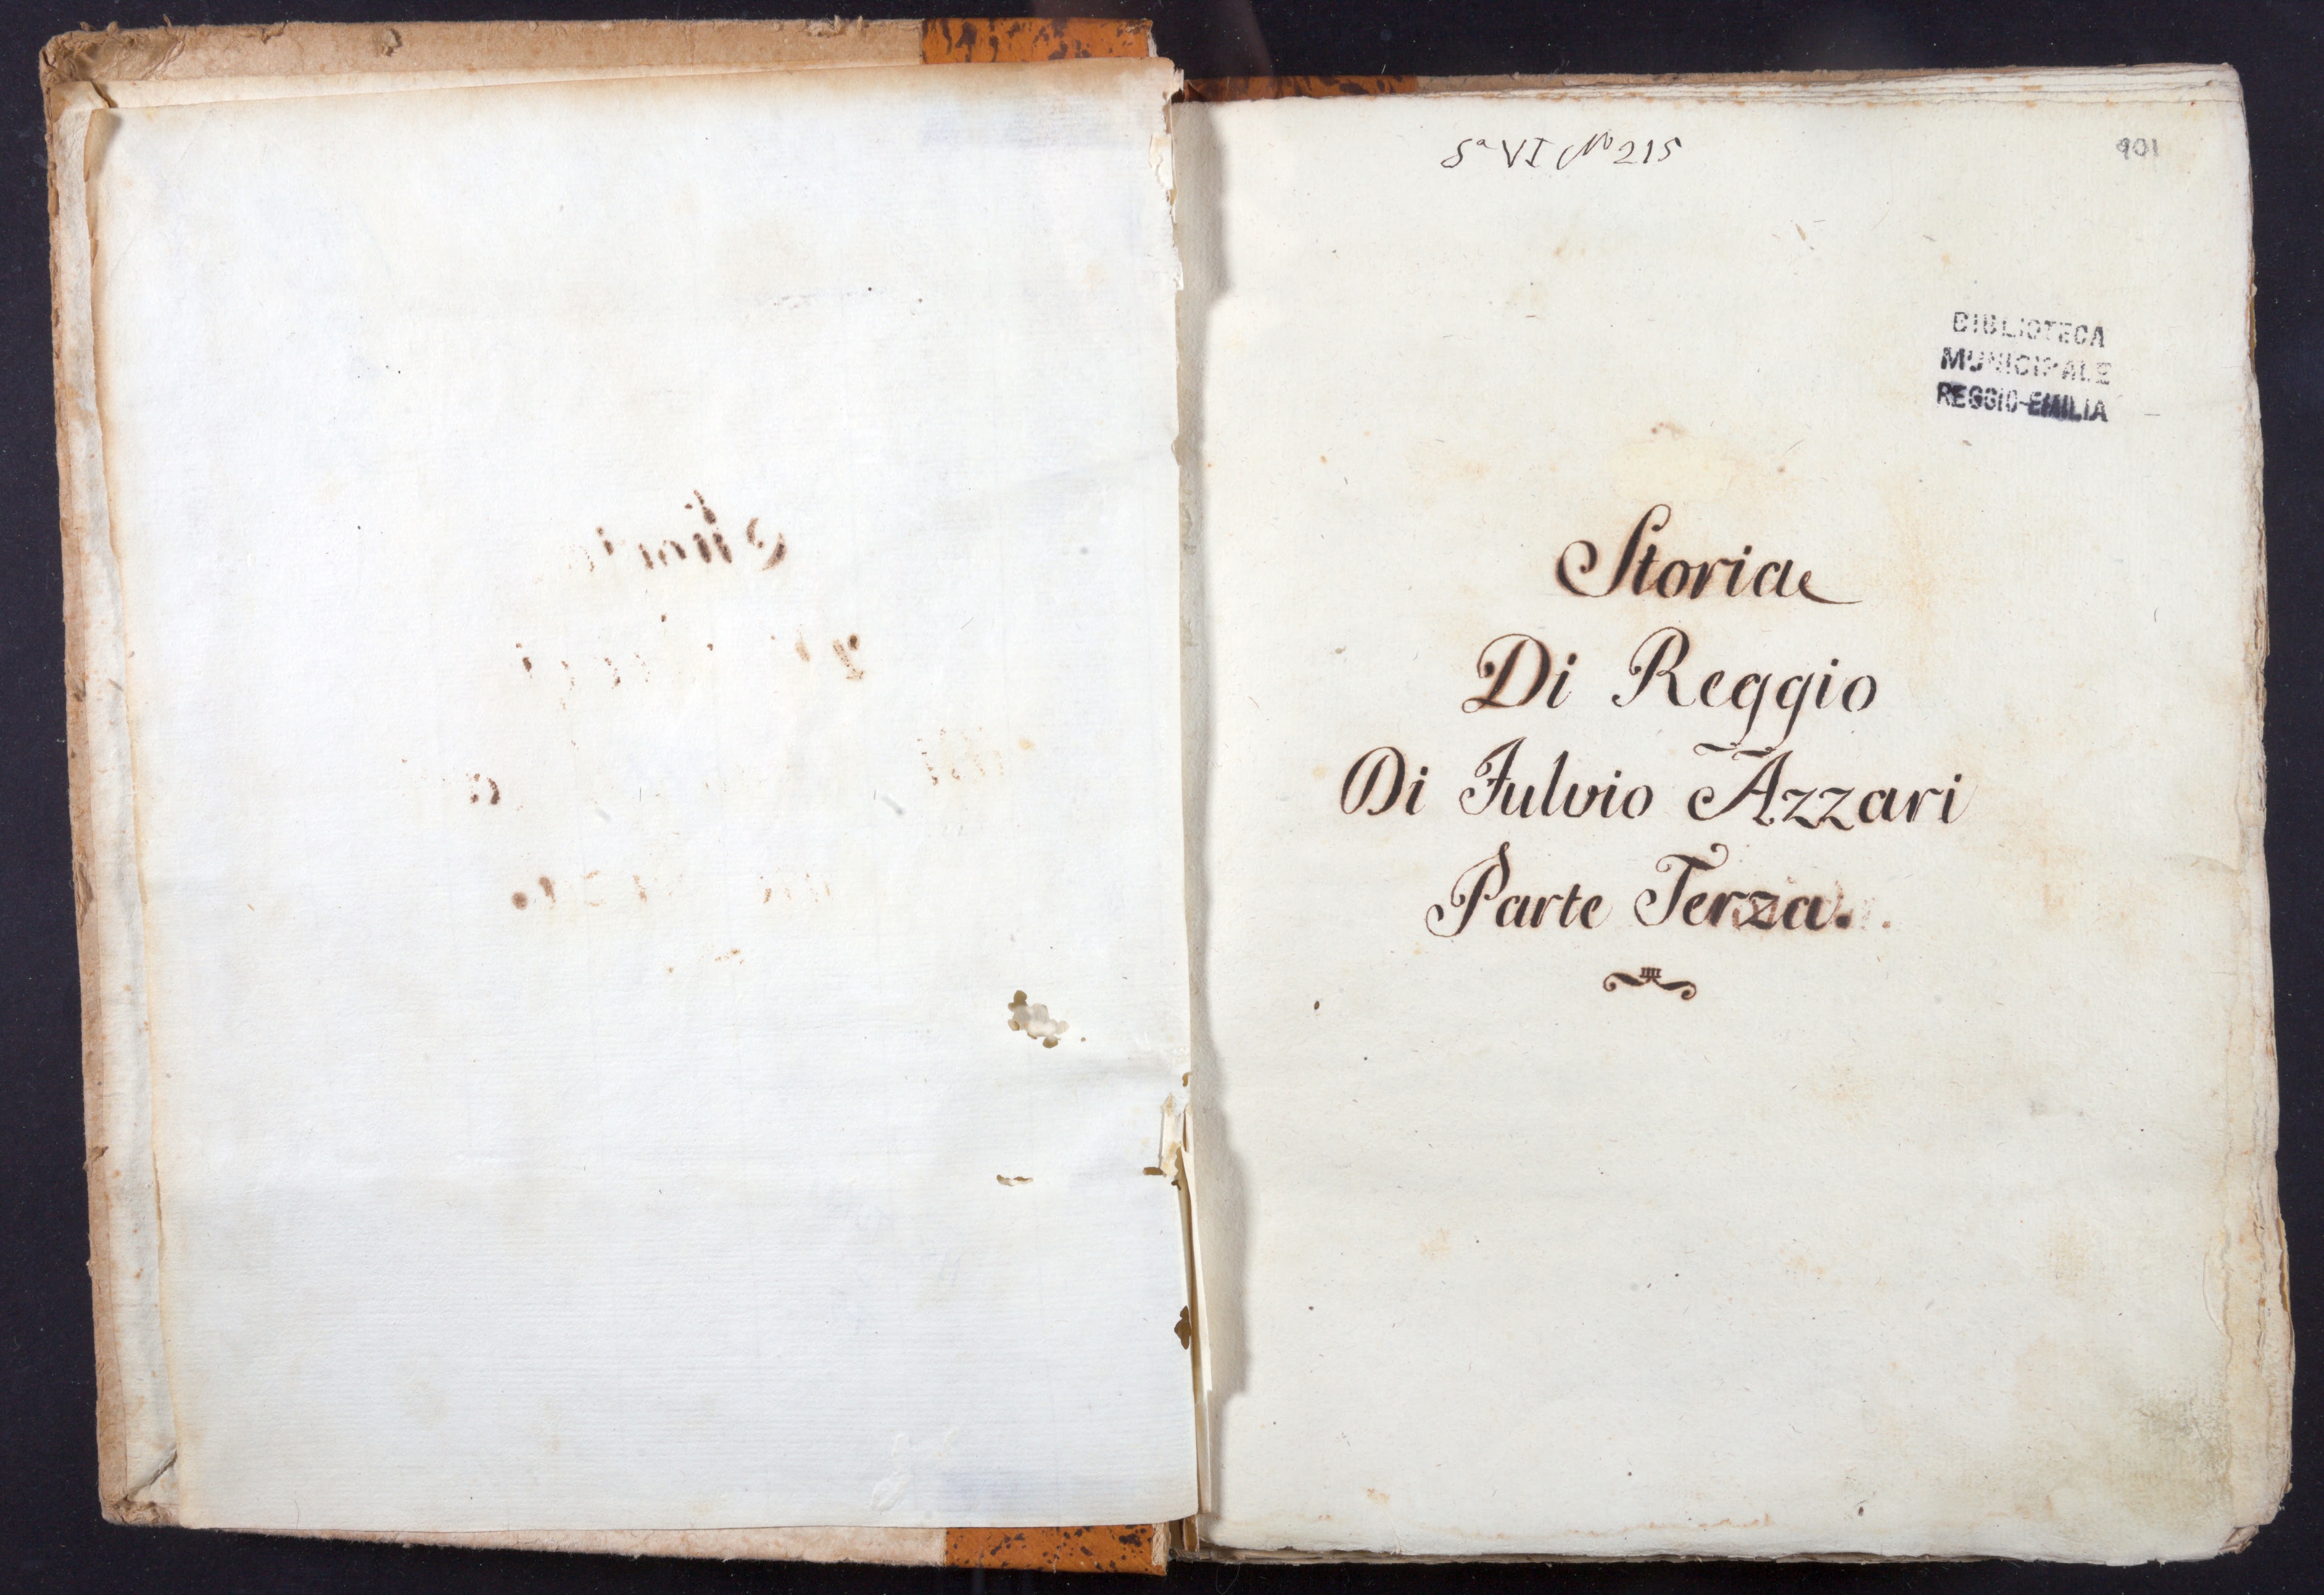 Sª VI Nº 215
901
BIBLIOTECA
MUNICIPALE
REGGIO-EMILIA
Storia
Di Reggio
Di Fulvio Azzari
Parte Terza.